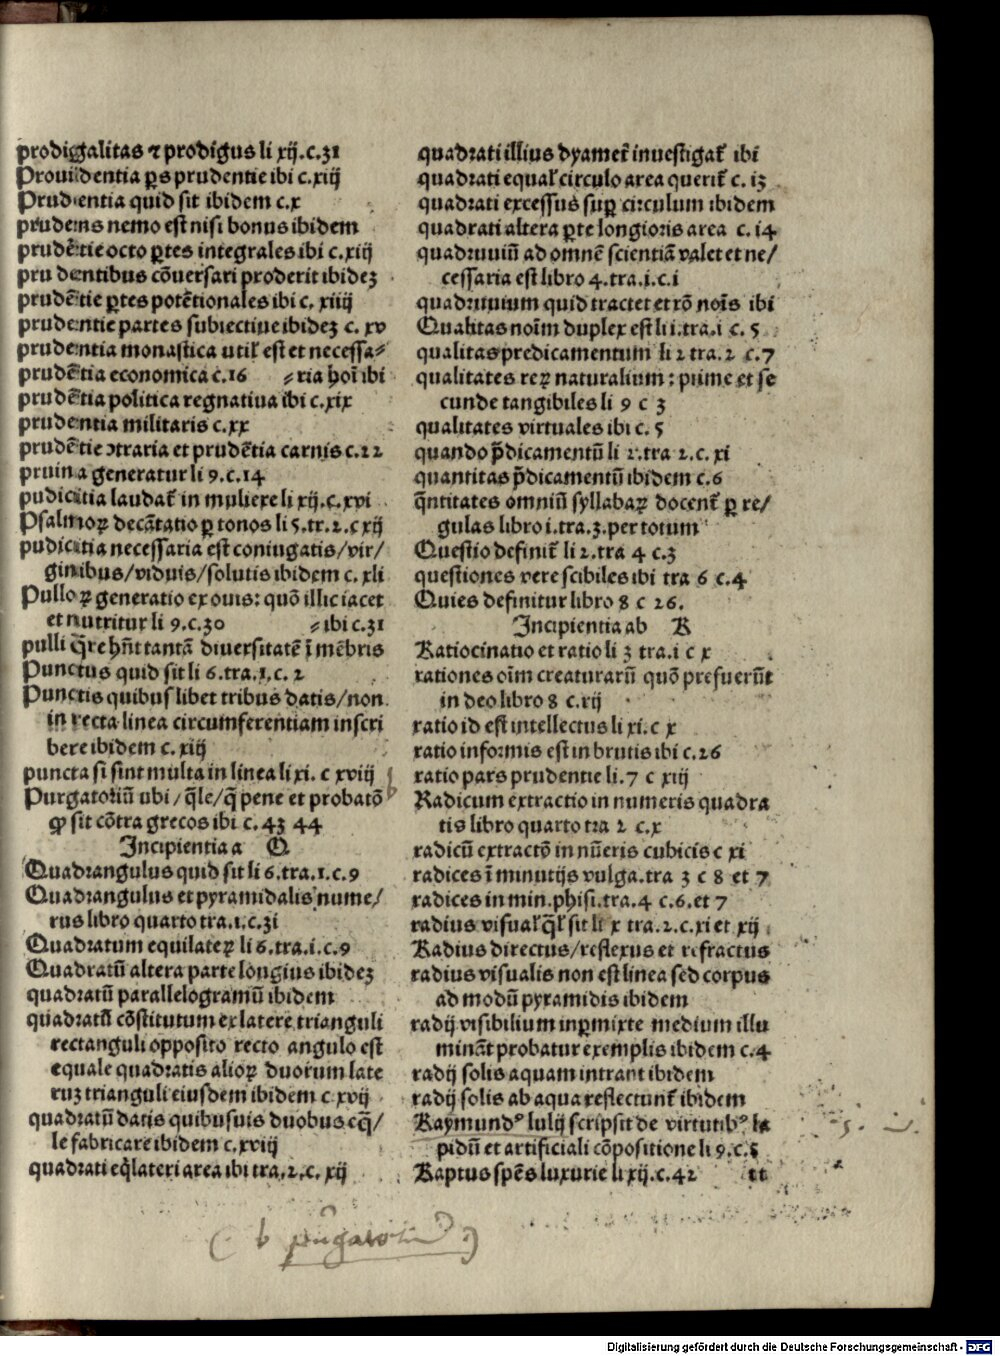 prodigalitas ⁊ prodigus li xij.c.31
Prouidentia ꝑs prudentie ibi c.xiij
Prudentia quid sit ibidem c.x
prudens nemo est nisi bonus ibidem
prudētie octo ꝑtes integrales ibi c.xiij
prudentibus cōuersari proderit ibidez
prudētie ꝑtes potētionales ibi c. xiiij
prudentie partes subiectiue ibidez c. xv
prudentia monastica util' est et necessa⸗
prudētia economica c.16 ⸗ria hoī ibi
prudētia politica regnatiua ibi c.xix
prudentia militaris c.xx
prudētie ꝯtraria et prudētia carnis c.22
pruina generatur li 9.c.14
pudicitia laudat' in muliere li xij.c.xvi
Psalmoꝝ decātatio ꝑ tonos li 5.tr.2.c xij
pudicitia necessaria est coniugatis/vir/
ginibus/viduis/solutis ibidem c. xli
Pulloꝝ generatio ex ouis: quō illic iacet
et nutritur li 9.c.30 ⸗ ibi c.31
pulli q̄re hn̄t tantā diuersitatē ī mēbris
Punctus quid sit li 6.tra.1.c. 2
Punctis quibuslibet tribus datis/non
in recta linea circumferentiam inscri
bere ibidem c. xiij
puncta si sint multa in linea li xi. c xviij
Purgatoriū ubi/q̄le/q̄ pene et probatō
ꝙ sit cōtra grecos ibi c.43 44
Incipientia a Q
Quadrangulus quid sit li 6.tra.1.c.9
Quadrangulus et pyramidalis nume/
rus libro quarto tra.1.c.31
Quadratum equilateꝝ li 6.tra.i.c.9
Quadratū altera parte longius ibidez
quadratū parallelogramū ibidem
quadratū cōstitutum ex latere trianguli
rectanguli opposito recto angulo est
equale quadratis alioꝝ duorum late
ruz trianguli eiusdem ibidem c xvij
quadratū datis quibusuis duobus eq̄/
le fabricare ibidem c.xviij
quadrati eq̄lateri area ibi tra.2.c. xij
quadrati illius dyamet' inuestigat' ibi
quadrati equal' circulo area querit' c. 13
quadrati excessus suꝑ circulum ibidem
quadrati altera ꝑte longioris area c. 14
quadruuiū ad omnē scientiā valet et ne/
cessaria est libro 4.tra.i.c.i
quadruuium quid tractet et rō noīs ibi
Qualitas noīm duplex est li i.tra.i c. 5
qualitas predicamentum li 2 tra. 2 c.7
qualitates reꝝ naturalium: prime et se
cunde tangibiles li 9 c 3
qualitates virtuales ibi c. 5
quando p̄dicamentū li 2.tra 2.c. xi
quantitas p̄dicamentū ibidem c.6
q̄ntitates omniū syllabaꝝ docent' ꝑ re/
gulas libro i.tra.3.per totum
Questio definit' li 2.tra 4 c.3
questiones vere scibiles ibi tra 6 c.4
Quies definitur libro 8 c 26.
Incipientia ab R
Ratiocinatio et ratio li 3 tra.i c x
rationes oīm creaturarū quō prefuerūt
in deo libro 8 c.xij
ratio id est intellectus li xi. c x
ratio informis est in brutis ibi c.26
ratio pars prudentie li.7 c xiij
Radicum extractio in numeris quadra
tis libro quarto tra 2 c.x
radicū extractō in nūeris cubicis c xi
radices ī minutijs vulga.tra 3 c 8 et 7
radices in min.phisi.tra.4 c.6.et 7
radius visual' q̄l' sit li x tra.2.c.xi et xij
Radius directus/reflexus et refractus
radius visualis non est linea sed corpus
ad modū pyramidis ibidem
radij visibilium inꝑmixte medium illu
mināt probatur exemplis ibidem c.4
radij solis aquam intrant ibidem
radij solis ab aqua reflectunt' ibidem
Raymundꝰ lulij scripsit de virtutibꝰ la
pidū et artificiali cōpositione li 9.c.5
Raptus spēs luxurie li xij.c.42 tt
b purgatoriū
Digitalisierung gefördert durch die Deutsche Forschungsgemeinschaft - DFG